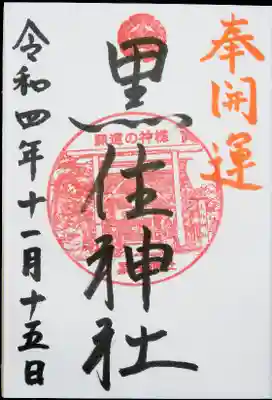 奉開運
黒住神社
開運の神様
令和四年十一月十五日